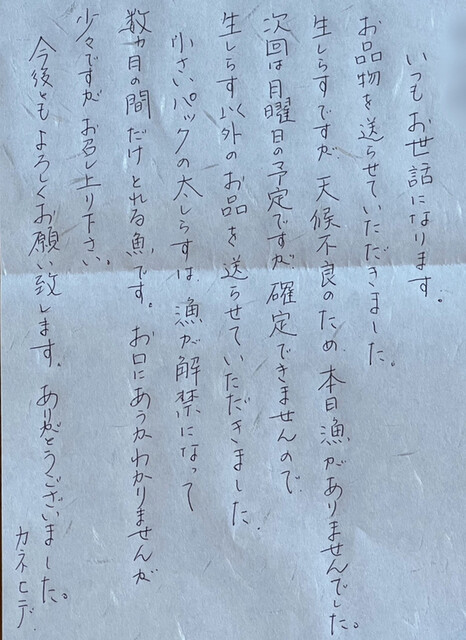 いつもお世話になります。
お品物を送らせていただきました。
生しらすですが天候不良のため本日漁がありませんでした。
次回は月曜日の予定ですが確定できませんので
生しらす以外のお品を送らせていただきました
小さいパックの太しらすは、漁が解禁になって
数ヵ日の間だけとれる魚です。お口にあうかわかりませんが
少々ですがお召し上り下さい。
今後ともよろしくお願い致します。ありがとうございました。
カネヒデ